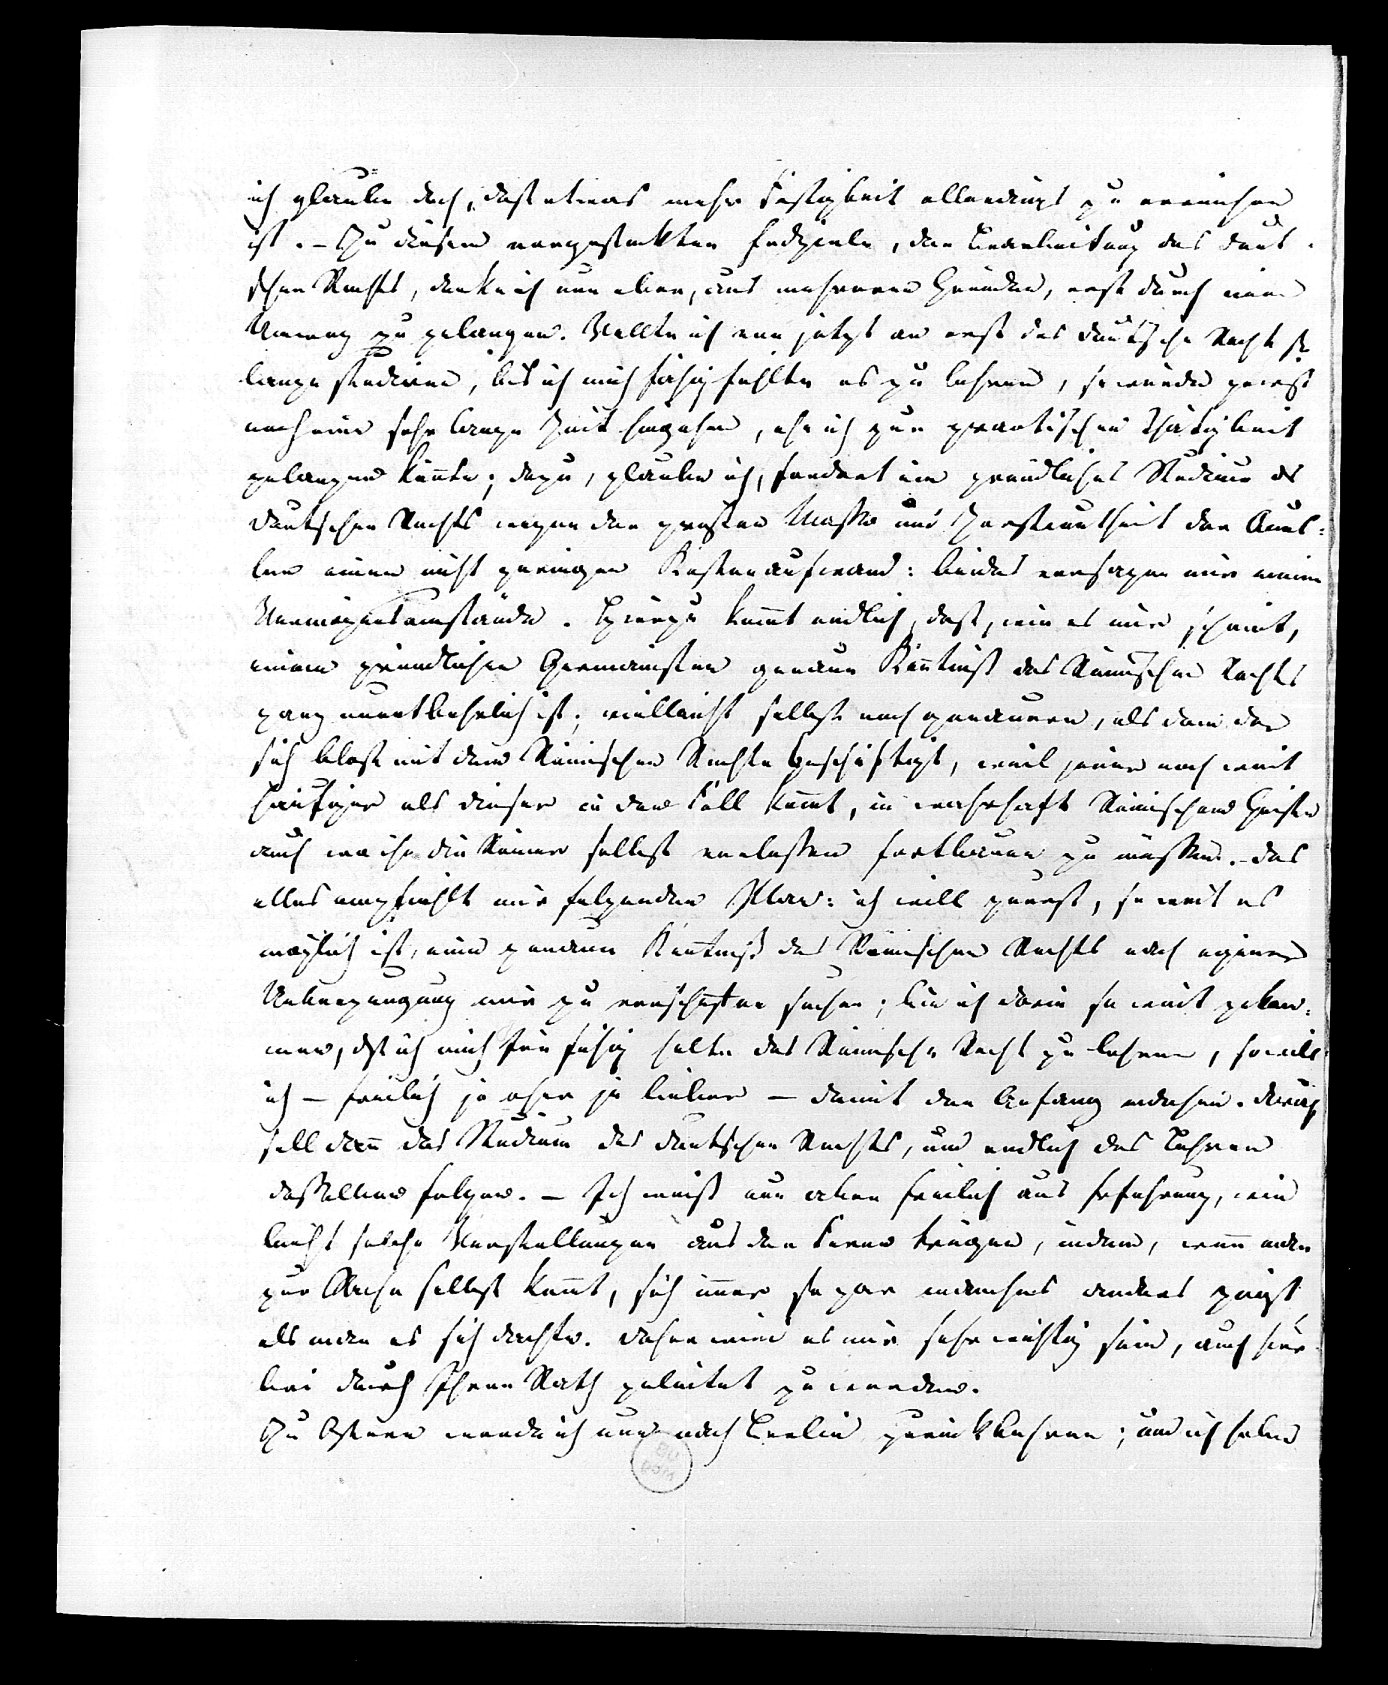 ich glaube doch, daß etwas mehr Festigkeit allerdings zu erreichen
ist. – Zu diesem vorgesteckten Endziele, der Bearbeitung des deut-
schen Rechts, denke ich nun aber, aus mehreren Gründen, erst durch einen
Umweg zu gelangen. Wollte ich von jetzt an erst das deutsche Recht so
lange studiren, bis ich mich fähig fühlte es zu lehren, so würde gewiß
noch eine sehr lange Zeit hingehen, ehe ich zur practischen Thätigkeit
gelangen könnte; dazu, glaube ich, fordert ein gründliches Studium des
deutschen Rechts wegen der großen Masse und Zerstreutheit der Quel-
len einen nicht geringen Kostenaufwand: beides versagen mir meine
Vermögensumstände. Hierzu kommt endlich, daß, wie es mir scheint,
einem gründlichen Germanisten genaue Kenntniß des Römischen Rechts
ganz unentbehrlich ist; vielleicht selbst noch genauere, als dem der
sich blos mit dem Römischen Rechte beschäftigt, weil jener noch weit
häufiger als dieser in den Fall kommt, in wahrhaft Römischem Geiste
auch wo ihn die Römer selbst verlassen fortbauen zu müssen. – Das
alles empfiehlt mir folgenden Plan: ich will zuerst, so weit es
möglich ist, eine genaue Kenntniß des Römischen Rechts nach eigener
Ueberzeugung mir zu verschaffen suchen; bin ich darin so weit gekom-
men, daß ich mich für fähig halte das Römische Recht zu lehren, so will
ich – freilich je eher je lieber – damit den Anfang machen. Darauf
soll dann das Studium des deutschen Rechts, und endlich das Lehren
desselben folgen. – Ich weiß nun aber freilich aus Erfahrung, wie
leicht solche Vorstellungen aus der Ferne trügen, indem, wenn man
zur Sache selbst kommt, sich immer so gar manches anders zeigt
als man es sich dachte. Daher wird es mir sehr wichtig sein, auch hier-
bei durch Ihren Rath geleitet zu werden.
Zu Ostern werde ich nun nach Berlin zurückkehren; und ich habe